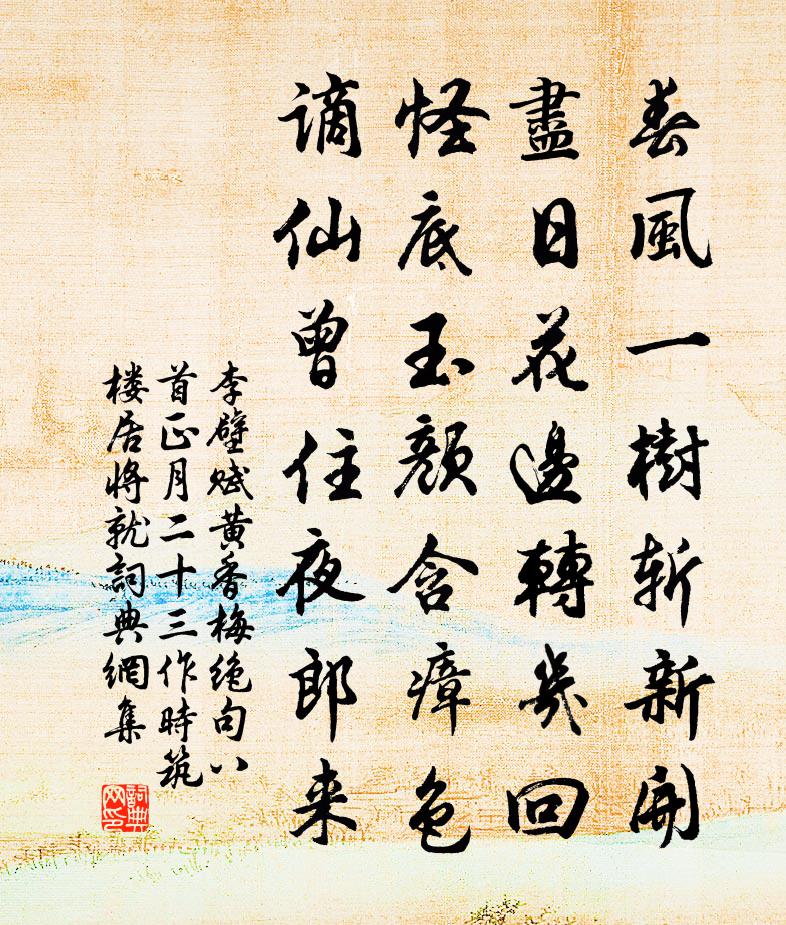 春風一樹斬新開
盡日花邊轉幾回
怪底玉顏含瘴色
謫仙曾住夜郎来
李壁赋黄香梅绝句八
首正月二十三作時筑
楼居將就詞典網集
詞典網印